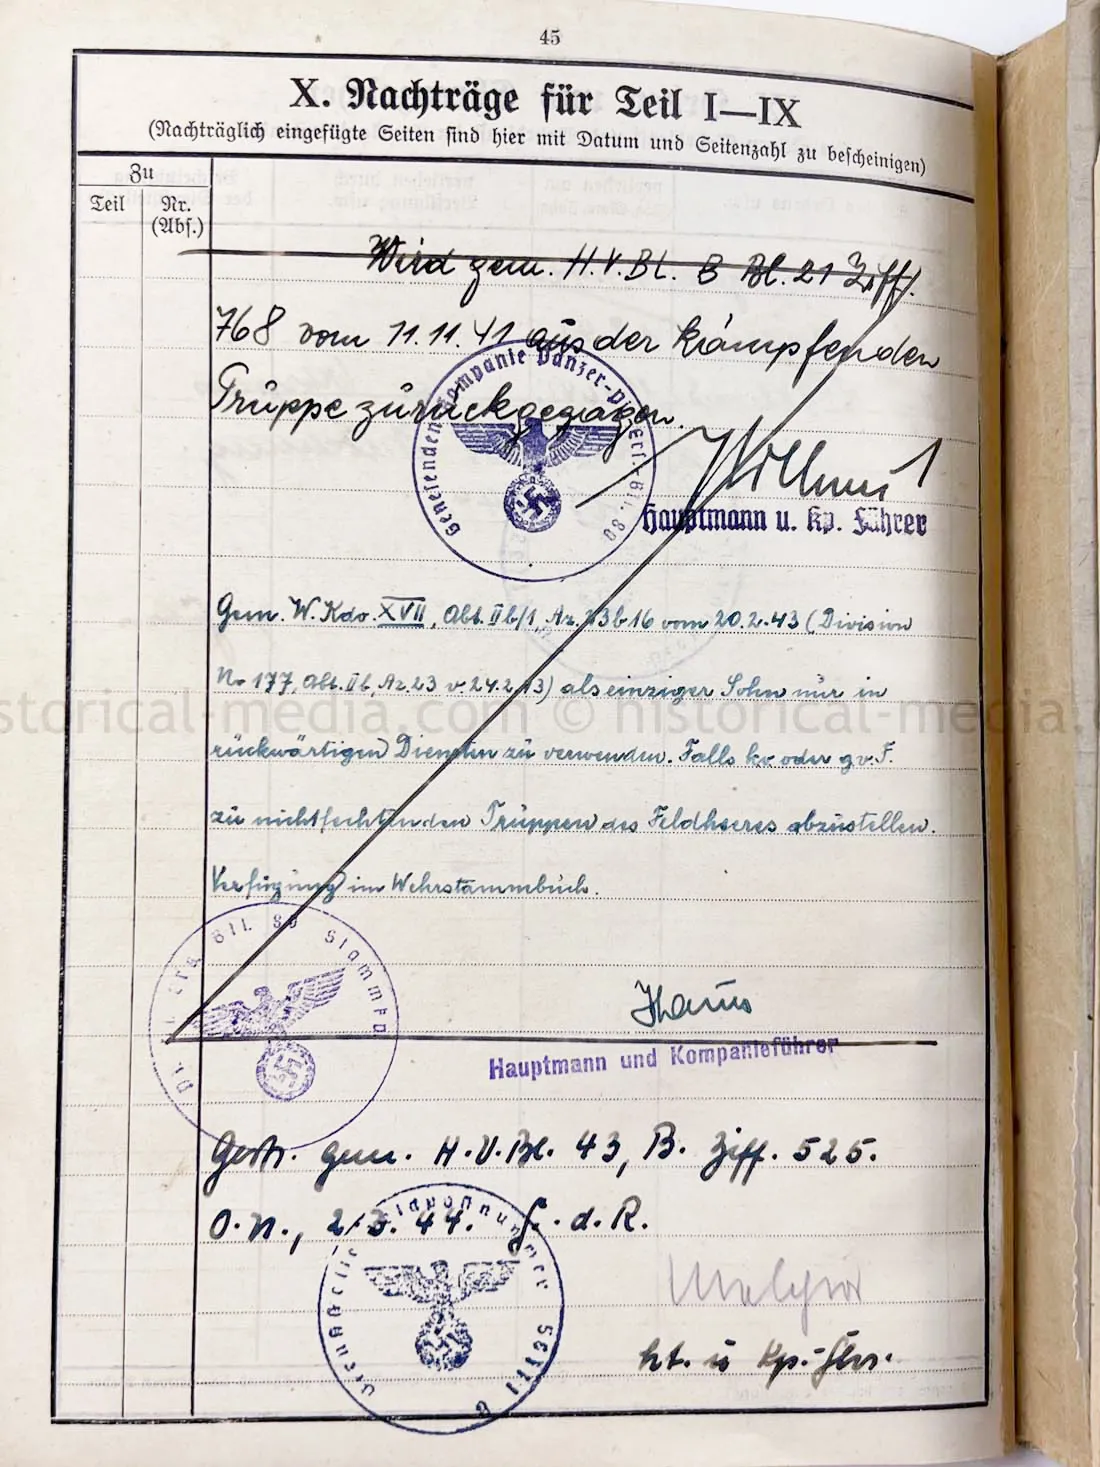 45
X. Nachträge für Teil I—IX
(Nachträglich eingefügte Seiten sind hier mit Datum und Seitenzahl zu bescheinigen)
Zu
Teil
Nr.
(Abs.)
Wird gem. H.V.Bl. B Bl. 21 Ziff.
768 vom 11.11.41 aus der kämpfenden
Truppe zurückgezogen.
Genesenden-Kompanie Panzer-Pi. Ers.-Btl. 80
Hauptmann u. Kp. Führer
Gem. W. Kdo. XVII, Abt. IIb/1, Az. 23b16 vom 20.2.43 (Division
Nr 177, Abt. IIb, Az 23 v. 24.2.43) als einziger Sohn nur in
rückwärtigen Diensten zu verwenden. Falls kv oder gv.F.
zu nichtfechtenden Truppen des Feldheeres abzustellen.
Verfügung im Wehrstammbuch.
historical-media.com © historical-media.
Btl. 80 Stammkp.
Hauptmann und Kompanieführer
Gestr. gem. H.V.Bl. 43, B. Ziff. 525.
O.N., 2.3.44. F. d. R.
Dienststelle Feldpostnummer
Melchior
lt. u Kp.-Fhr.